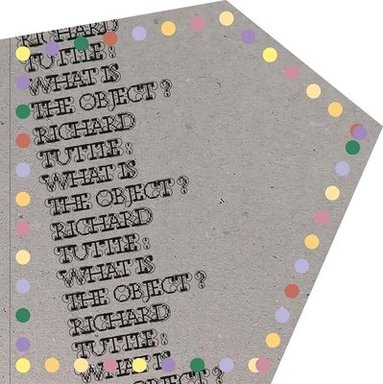 RICHARD
TUTTLE:
WHAT IS
THE OBJECT?
RICHARD
TUTTLE:
WHAT IS
THE OBJECT?
RICHARD
TUTTLE:
WHAT IS
THE OBJECT?
RICHARD
TUTTLE:
WHAT IS
THE OBJECT?